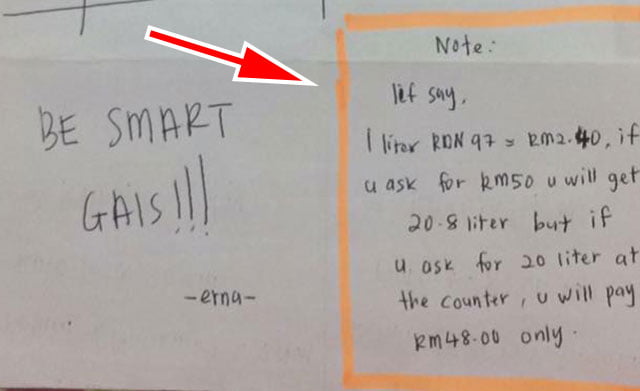 BE SMART
GAIS!!!
-erna-
Note:
let say,
1 liter RON 97 = RM2.40, if
u ask for RM50 u will get
20.8 liter but if
u ask for 20 liter at
the counter, u will pay
RM48.00 only.